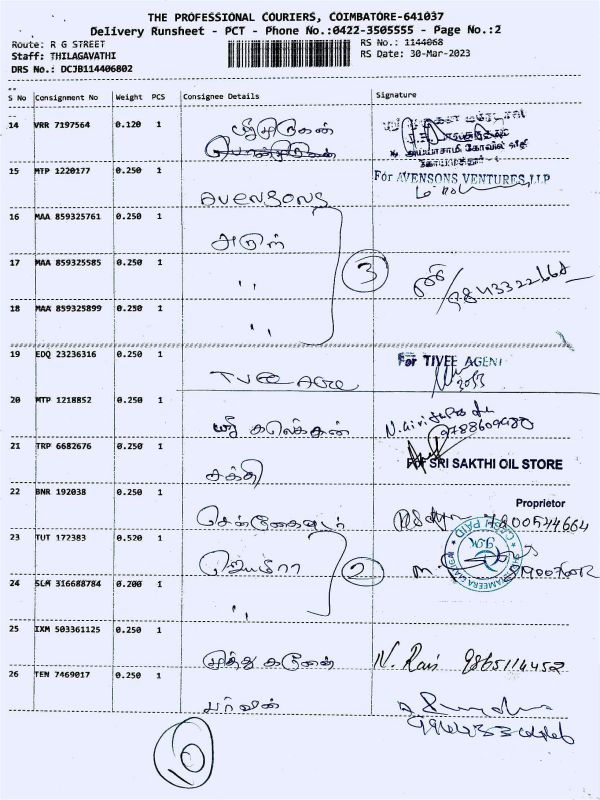 THE PROFESSIONAL COURIERS, COIMBATORE-641037
Delivery Runsheet - PCT - Phone No.:0422-3505555 - Page No.:2
Route: R G STREET
Staff: THILAGAVATHI
DRS No.: DCJB114406802
RS No.: 1144068
RS Date: 30-Mar-2023
S No Consignment No Weight PCS Consignee Details Signature
14 VRR 7197564 0.120 1 ஸ்ரீமுருகன்
15 MTP 1220177 0.250 1 AVENSONS For AVENSONS VENTURES LLP
16 MAA 859325761 0.250 1 அருள்
17 MAA 859325585 0.250 1 " 3
18 MAA 859325899 0.250 1 "
19 EDQ 23236316 0.250 1 TVEE AGRE For TIVEE AGENI
20 MTP 1218852 0.250 1 ஸ்ரீ 9788609980
21 TRP 6682676 0.250 1 சக்தி For SRI SAKTHI OIL STORE
Proprietor
22 BNR 192038 0.250 1 7800544664
23 TUT 172383 0.520 1 CASH PAID
24 SLM 316688784 0.200 1 " 2
25 IXM 503361125 0.250 1 முத்து கணேஷ் N. Rais 9865114452
26 TEN 7469017 0.250 1 பர்வின்
10